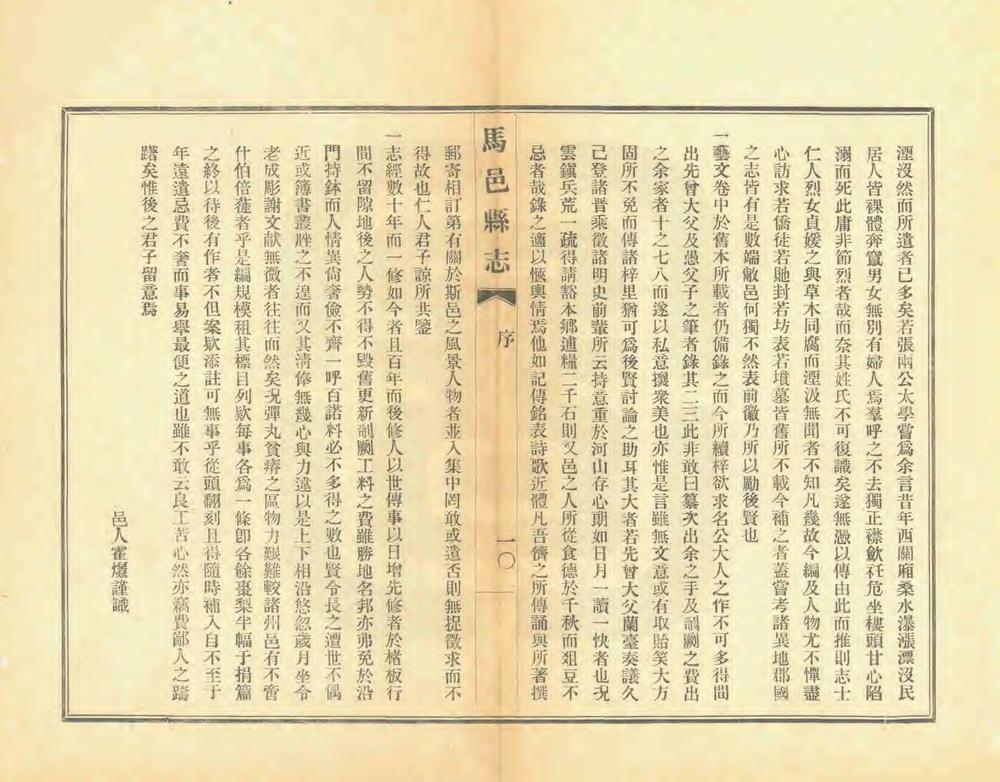 湮沒然而所遺者已多矣若張兩公太學嘗爲余言昔年西關廂桑水瀑漲漂沒民
居人皆裸體奔竄男女無別有婦人焉羣呼之不去獨正襟歛衽危坐樓頭甘心陷
溺而死此庸非節烈者哉而奈其姓氏不可復識矣遂無憑以傳由此而推則志士
仁人烈女貞媛之與草木同腐而湮汲無聞者不知凡幾故今編及人物尤不憚盡
心訪求若僑徒若貤封若坊表若墳墓皆舊所不載今補之者蓋嘗考諸異地郡國
之志皆有是數端敝邑何獨不然表前徽乃所以勵後賢也
一藝文卷中於舊本所載者仍備錄之而今所續梓欲求名公大人之作不可多得間
出先曾大父及愚父子之筆者錄其二三此非敢曰纂次出余之手及剞劂之費出
之余家者十之七八而遂以私意攘衆美也亦惟是言雖無文意或有取貽笑大方
固所不免而傳諸梓里猶可爲後賢討論之助耳其大者若先曾大父蘭臺奏議久
已登諸晉乘徵諸明史前輩所云持意重於河山存心期如日月一讀一快者也況
雲鎭兵荒一疏得請豁本鄉逋糧二千石則又邑之人所從食德於千秋而俎豆不
忌者哉錄之適以愜輿情焉他如記傳銘表詩歌近體凡吾儕之所傳誦與所著撰
馬邑縣志
序
一〇
郵寄相訂第有關於斯邑之風景人物者並入集中罔敢或遺否則無捉徵求而不
得故也仁人君子諒所共鑒
一志經數十年而一修如今者且百年而後修人以世傳事以日增先修者於楮板行
間不留隙地後之人勢不得不毀舊更新剞劂工料之費雖勝地名邦亦弗免於沿
門持鉢而人情異尙奢儉不齊一呼百諾料必不多得之數也賢令長之遭世不偶
近或簿書叢脞之不遑而又其淸俸無幾心與力違以是上下相沿悠忽歲月坐令
老成彫謝文献無徵者往往而然矣況彈丸貧瘠之區物力艱難較諸州邑有不啻
什伯倍蓰者乎是編規模租其標目列欵每事各爲一條卽各餘棗梨半幅于捐篇
之終以待後有作者不但案欵添註可無事乎從頭翻刻且得隨時補入自不至于
年遠遺忌費不奢而事易舉最便之道也雖不敢云良工苦心然亦竊費鄙人之躊
躇矣惟後之君子留意焉
邑人霍燝謹識